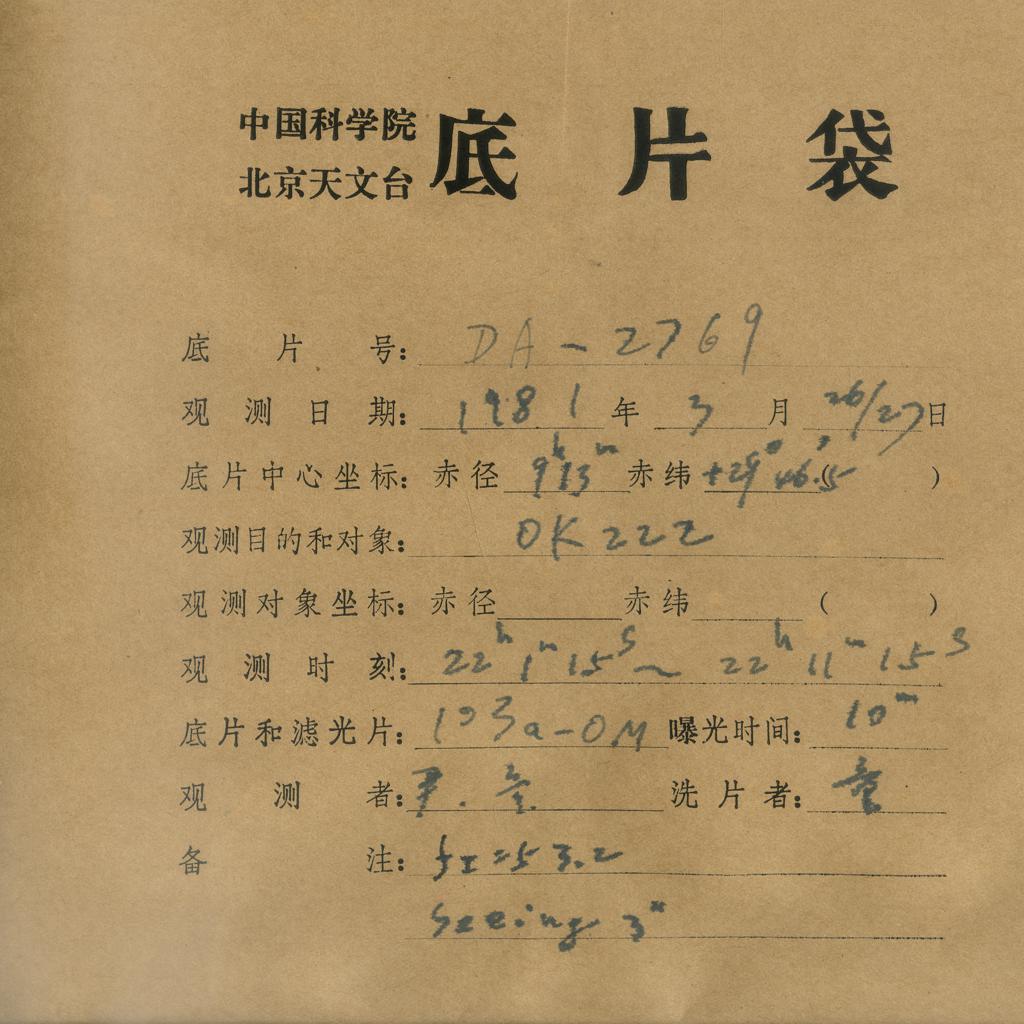 中国科学院
北京天文台
底片袋
底片号: DA-2769
观测日期: 1981年3月26/27日
底片中心坐标: 赤径 9ʰ13ᵐ 赤纬 +29°46.′5 ( )
观测目的和对象: OK 222
观测对象坐标: 赤径 赤纬 ( )
观测时刻: 22ʰ1ᵐ15ˢ ~ 22ʰ11ᵐ15ˢ
底片和滤光片: 103a-O 曝光时间: 10ᵐ
观测者: 洗片者: 童
备注: 53.2
Seeing 3"